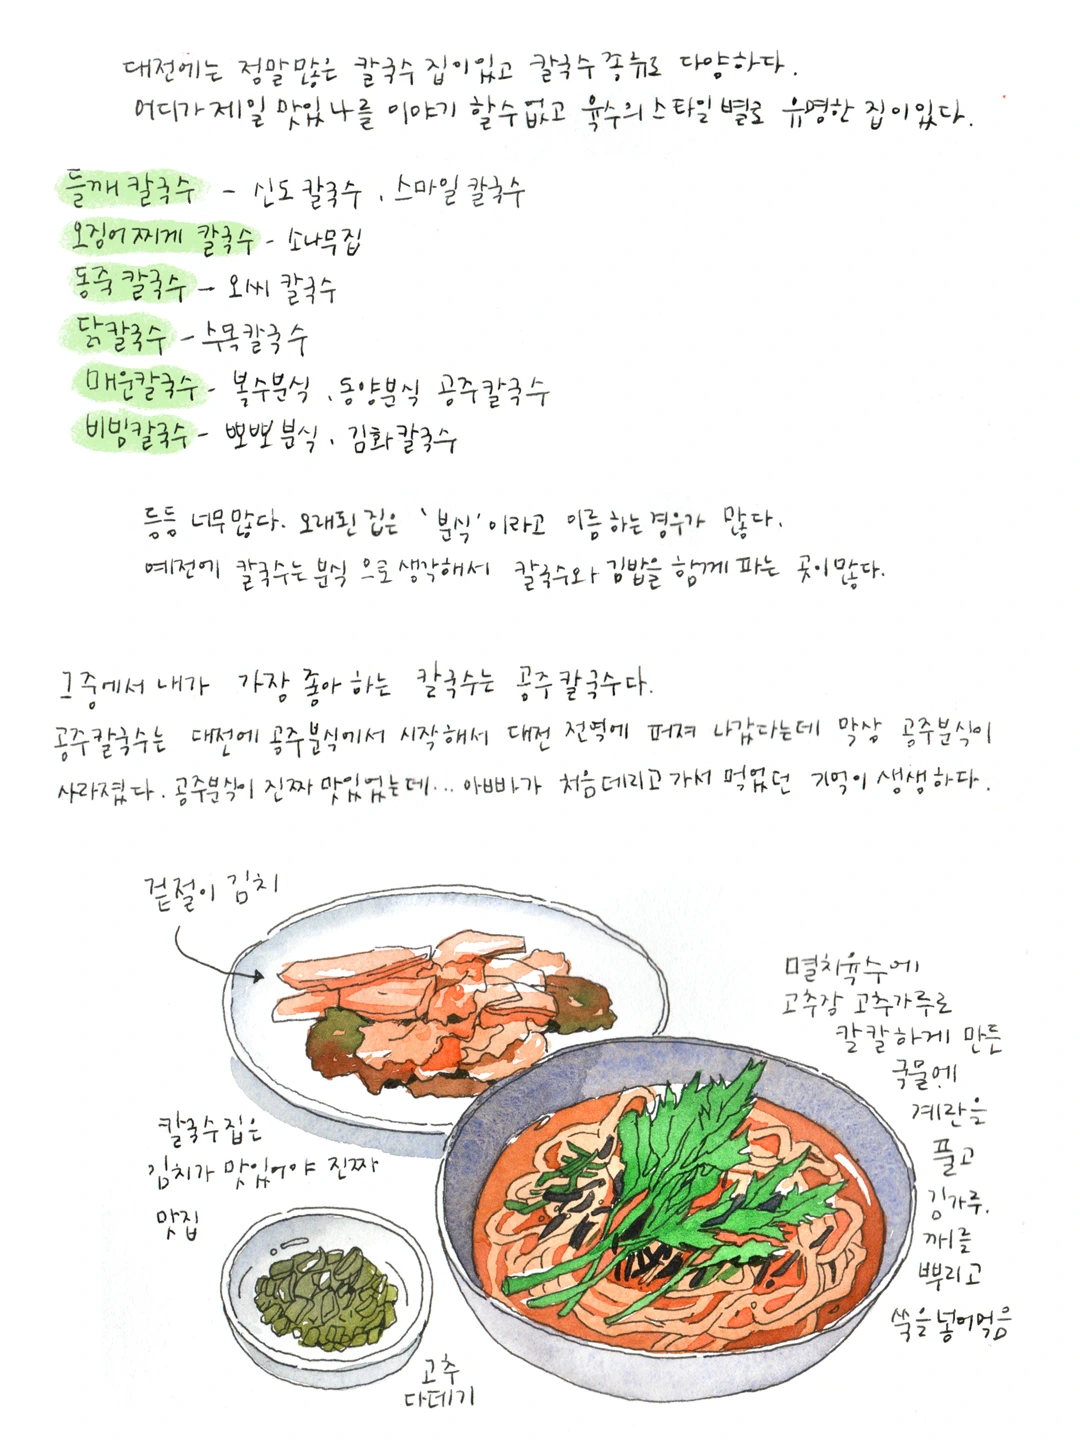 대전에는 정말 많은 칼국수 집이 있고 칼국수 종류도 다양하다.
어디가 제일 맛있나를 이야기 할 수 없고 육수의 스타일 별로 유명한 집이 있다.
들깨 칼국수 - 신도 칼국수, 스마일 칼국수
오징어 찌게 칼국수 - 소나무집
동죽 칼국수 - 오씨 칼국수
닭칼국수 - 수목칼국수
매운칼국수 - 복수분식, 동양분식 공주칼국수
비빔칼국수 - 뽀뽀분식, 김화칼국수
등등 너무많다. 오래된 집은 '분식'이라고 이름하는 경우가 많다.
예전에 칼국수는 분식으로 생각해서 칼국수와 김밥을 함께 파는 곳이 많다.
그중에서 내가 가장 좋아하는 칼국수는 공주칼국수다.
공주칼국수는 대전에 공주분식에서 시작해서 대전 전역에 퍼져 나갔다는데 막상 공주분식이
사라졌다. 공주분식이 진짜 맛있었는데... 아빠가 처음 데리고 가서 먹었던 기억이 생생하다.
겉절이 김치
멸치육수에
고추장 고추가루로
칼칼하게 만든
국물에
계란을
풀고
김가루,
깨를
뿌리고
쑥을 넣어먹음
칼국수집은
김치가 맛있어야 진짜
맛집
고추
다데기